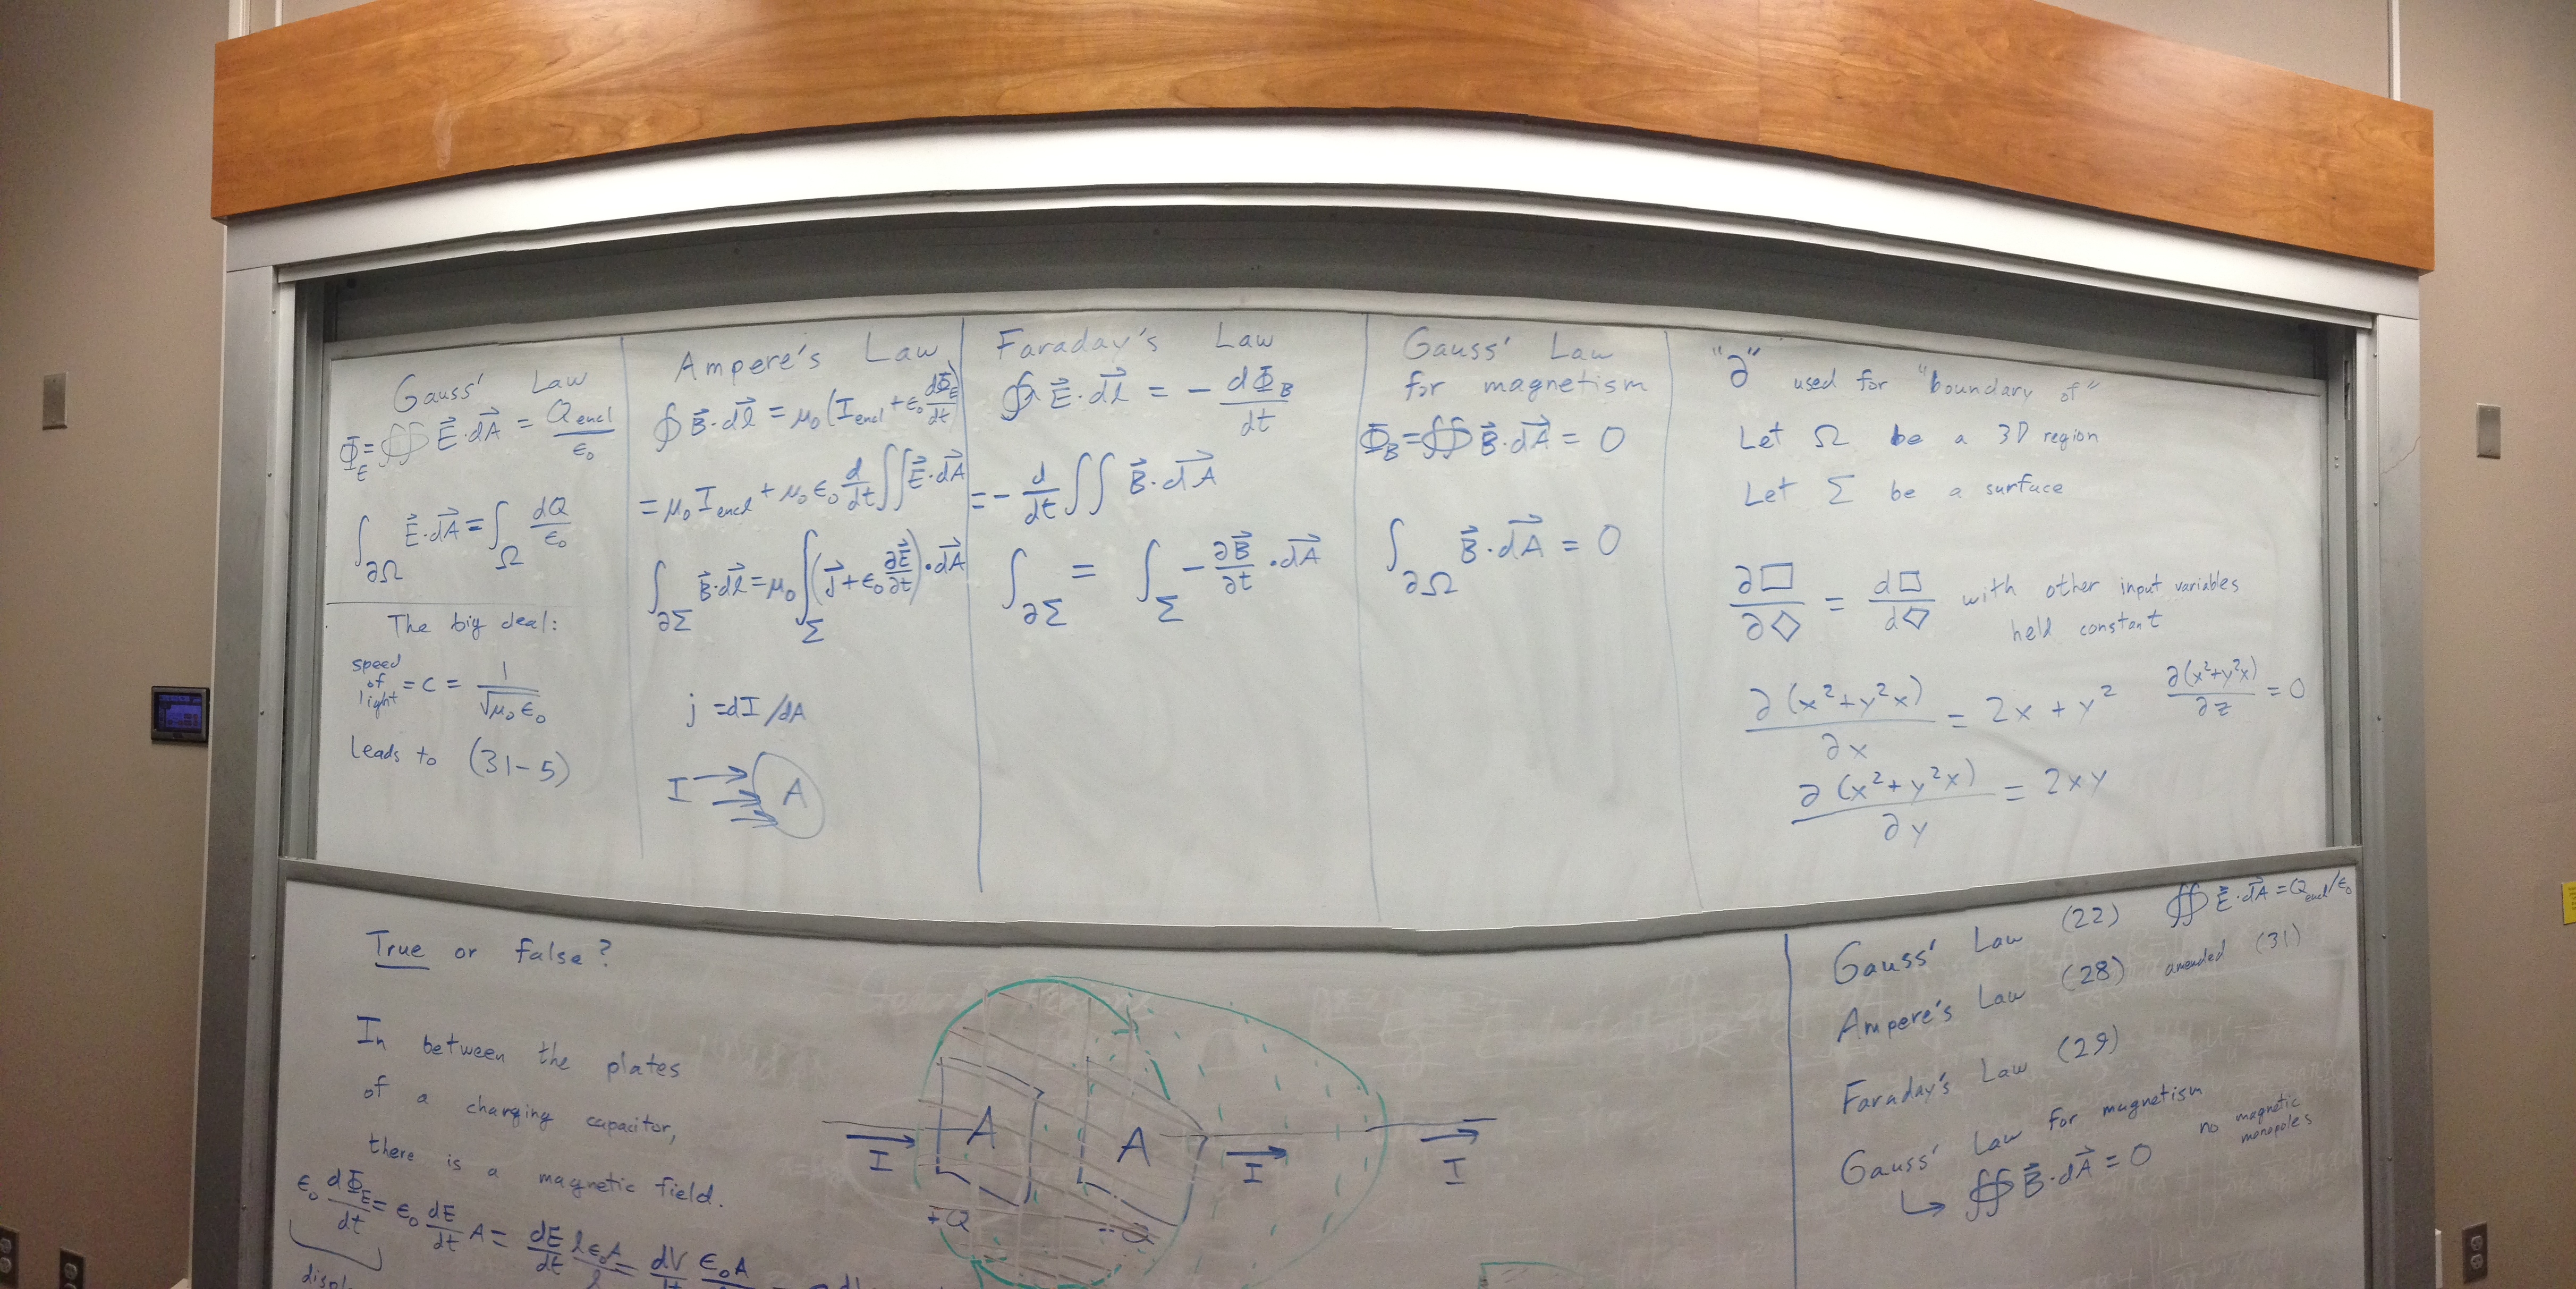 Gauss' Law
Φ_E = ∯ E⃗·dA⃗ = Q_encl/ε₀
∫_∂Ω E⃗·dA⃗ = ∫_Ω dQ/ε₀
The big deal:
speed of light = c = 1/√μ₀ε₀
leads to (31-5)
Ampere's Law
∮ B⃗·dl⃗ = μ₀(I_encl + ε₀ dΦ_E/dt)
= μ₀ I_encl + μ₀ ε₀ d/dt ∬ E⃗·dA⃗
∫_∂Σ B⃗·dl⃗ = μ₀ ∫_Σ (J⃗ + ε₀ ∂E⃗/∂t)·dA⃗
j = dI/dA
I A
Faraday's Law
∮ E⃗·dl⃗ = - dΦ_B/dt
= - d/dt ∬ B⃗·dA⃗
∫_∂Σ = ∫_Σ - ∂B⃗/∂t · dA⃗
Gauss' Law
for magnetism
Φ_B = ∯ B⃗·dA⃗ = 0
∫_∂Ω B⃗·dA⃗ = 0
"∂" used for "boundary of"
Let Ω be a 3D region
Let Σ be a surface
∂□/∂◇ = d□/d◇ with other input variables
held constant
∂(x²+y²x)/∂x = 2x + y² ∂(x²+y²x)/∂z = 0
∂(x²+y²x)/∂y = 2xy
True or false?
In between the plates
of a charging capacitor,
there is a magnetic field.
ε₀ dΦ_E/dt = ε₀ dE/dt A = dE/dt lε₀A/l = dV/dt ε₀A
I A A I I
+Q -Q
Gauss' Law (22) ∯ E⃗·dA⃗ = Q_encl/ε₀
Ampere's Law (28) amended (31)
Faraday's Law (29)
Gauss' Law for magnetism
↳ ∯ B⃗·dA⃗ = 0
no magnetic
monopoles